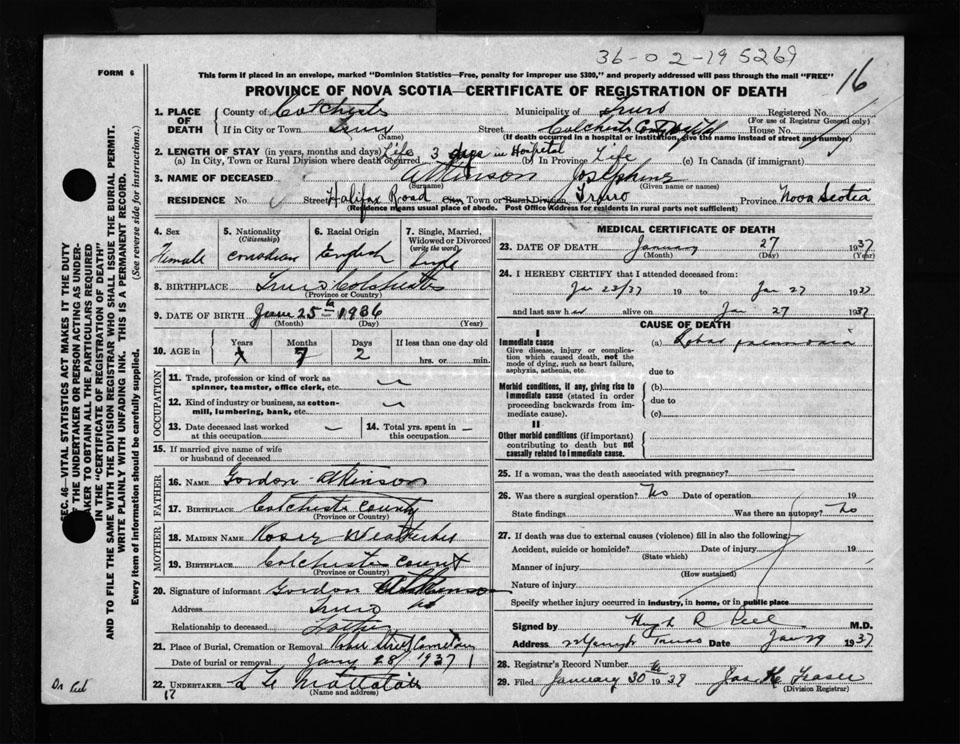 36-02-195269
16
FORM 6
This form if placed in an envelope, marked "Dominion Statistics—Free, penalty for improper use $300," and properly addressed will pass through the mail "FREE"
PROVINCE OF NOVA SCOTIA—CERTIFICATE OF REGISTRATION OF DEATH
1. PLACE OF DEATH
County of Colchester Municipality of Truro Registered No.
(For use of Registrar General only)
If in City or Town Truro Street Colchester County House No.
(Name) (If death occurred in a hospital or institution, give the name instead of street and number)
2. LENGTH OF STAY (in years, months and days) Life 3 days in Hospital Life
(a) In City, Town or Rural Division where death occurred (b) In Province (c) In Canada (if immigrant)
3. NAME OF DECEASED Atkinson Josephine
(Surname) (Given name or names)
RESIDENCE No. Street Halifax Road City Town or Rural Division Truro Province Nova Scotia
(Residence means usual place of abode. Post Office Address for residents in rural parts not sufficient)
4. Sex
Female
5. Nationality
(Citizenship)
Canadian
6. Racial Origin
English
7. Single, Married, Widowed or Divorced
(write the word)
Single
8. BIRTHPLACE Truro Colchester
(Province or Country)
9. DATE OF BIRTH June 25th 1936
(Month) (Day) (Year)
10. AGE in
Years Months Days If less than one day old
7 2 hrs. or min.
OCCUPATION
11. Trade, profession or kind of work as spinner, teamster, office clerk, etc.
12. Kind of industry or business, as cotton-mill, lumbering, bank, etc.
13. Date deceased last worked at this occupation —
14. Total yrs. spent in this occupation —
15. If married give name of wife or husband of deceased
FATHER
16. NAME Gordon Atkinson
17. BIRTHPLACE Colchester County
(Province or Country)
MOTHER
18. MAIDEN NAME
19. BIRTHPLACE Colchester County
(Province or Country)
20. Signature of informant Gordon Atkinson
Address Truro NS
Relationship to deceased Father
21. Place of Burial, Cremation or Removal Robie Street Cemetery
Date of burial or removal Jany 28 1937
22. UNDERTAKER
(Name and address)
17
Dr Peel
MEDICAL CERTIFICATE OF DEATH
23. DATE OF DEATH January 27 1937
(Month) (Day) (Year)
24. I HEREBY CERTIFY that I attended deceased from:
Jan 22/37 19 to Jan 27 1937
and last saw her alive on Jan 27 1937
CAUSE OF DEATH
I
Immediate cause
Give disease, injury or complication which caused death, not the mode of dying, such as heart failure, asphyxia, asthenia, etc.
(a) Lobar pneumonia
due to
Morbid conditions, if any, giving rise to immediate cause (stated in order proceeding backwards from immediate cause).
(b)
due to
(c)
II
Other morbid conditions (if important) contributing to death but not causally related to immediate cause.
25. If a woman, was the death associated with pregnancy? —
26. Was there a surgical operation? No Date of operation 19
State findings Was there an autopsy? No
27. If death was due to external causes (violence) fill in also the following:
Accident, suicide or homicide? Date of injury 19
(State which)
Manner of injury
(How sustained)
Nature of injury
Specify whether injury occurred in industry, in home, or in public place
Signed by Hugh R Peel M.D.
Address Truro Date Jan 29 1937
28. Registrar's Record Number
29. Filed January 30th 1937 Fraser
(Division Registrar)
SEC. 46—VITAL STATISTICS ACT MAKES IT THE DUTY
OF THE UNDERTAKER OR PERSON ACTING AS UNDER-
TAKER TO OBTAIN ALL THE PARTICULARS REQUIRED
IN THE "CERTIFICATE OF REGISTRATION OF DEATH"
AND TO FILE THE SAME WITH THE DIVISION REGISTRAR WHO SHALL ISSUE THE BURIAL PERMIT.
WRITE PLAINLY WITH UNFADING INK. THIS IS A PERMANENT RECORD.
Every item of information should be carefully supplied. (See reverse side for instructions.)